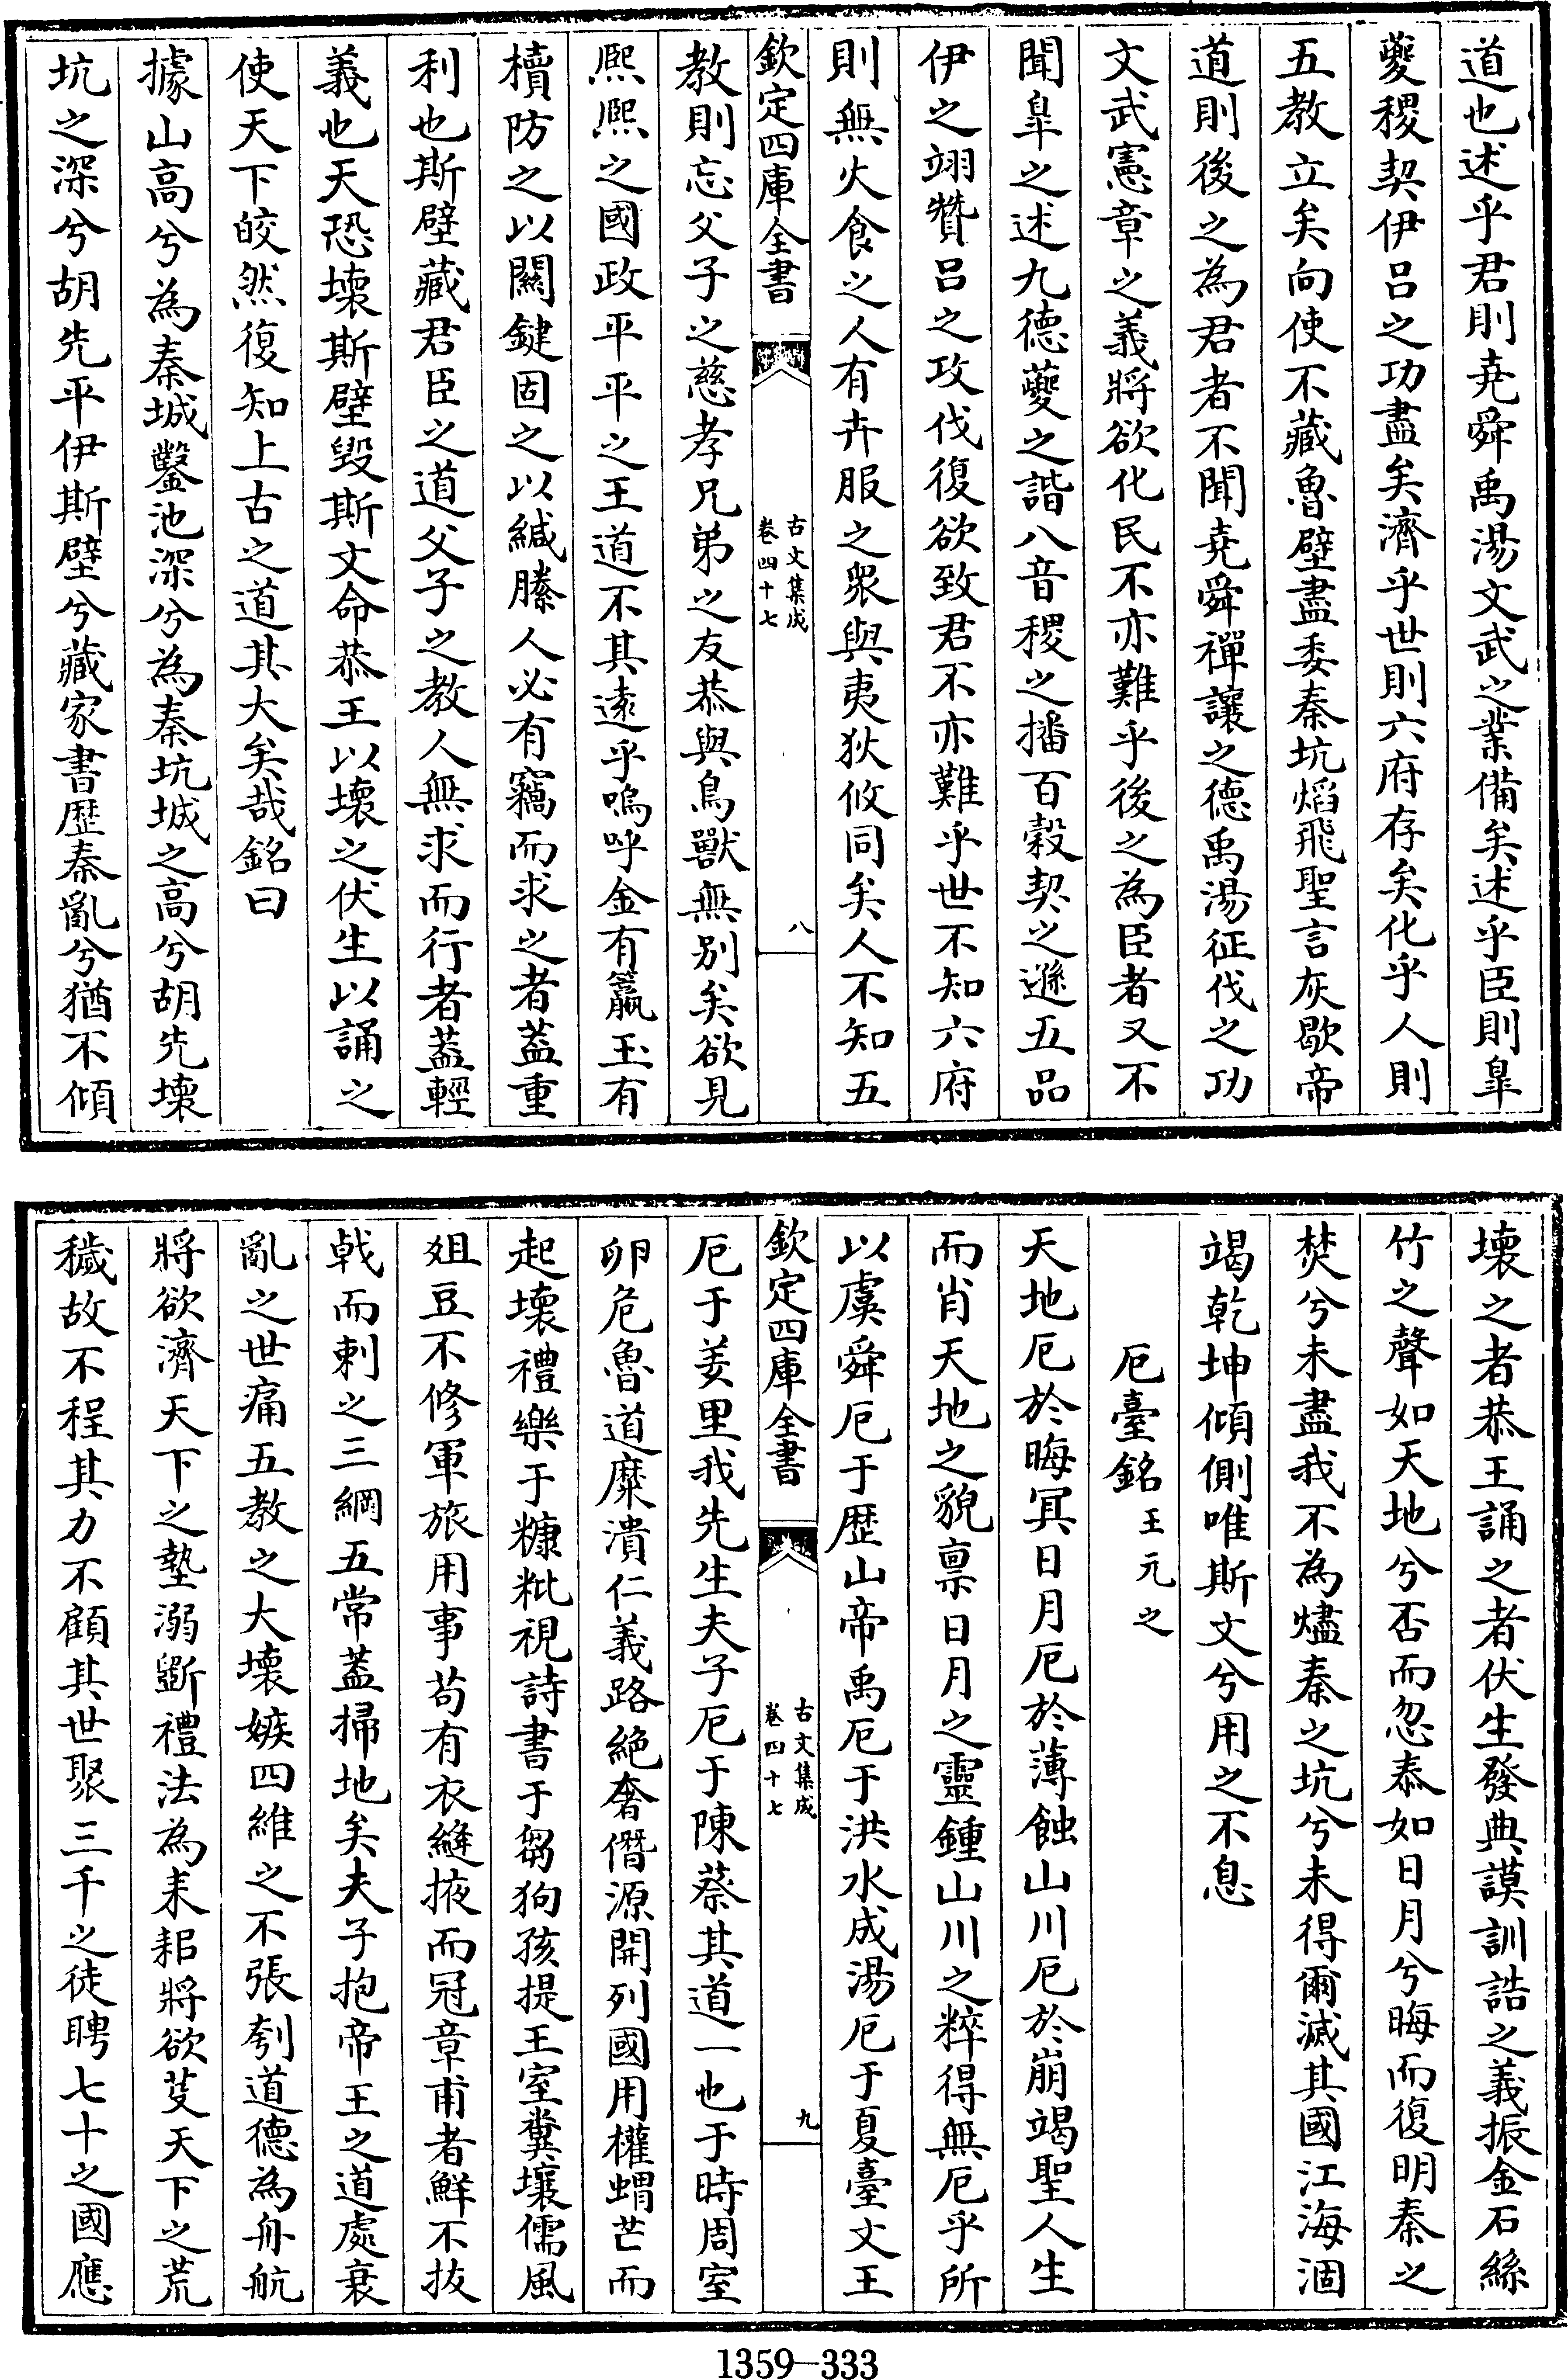 道也述乎君則堯舜禹湯文武之業備矣述乎臣則臯
夔稷契伊吕之功盡矣濟乎世則六府存矣化乎人則
五教立矣向使不藏魯壁盡委秦坑焰飛聖言灰歇帝
道則後之為君者不聞堯舜禪讓之德禹湯征伐之功
文武憲章之義將欲化民不亦難乎後之為臣者又不
聞臯之述九德夔之諧八音稷之播百穀契之遜五品
伊之翊贊吕之攻伐復欲致君不亦難乎世不知六府
則無火食之人有卉服之衆與夷狄攸同矣人不知五
欽定四庫全書
古文集成
卷四十七
八
教則忘父子之慈孝兄弟之友恭與鳥獸無别矣欲見
熈熈之國政平平之王道不其逺乎嗚呼金有籯玉有
櫝防之以闗鍵固之以緘縢人必有竊而求之者葢重
利也斯壁藏君臣之道父子之教人無求而行者葢輕
義也天恐壊斯壁毁斯文命恭王以壊之伏生以誦之
使天下皎然復知上古之道其大矣哉銘曰
據山高兮為秦城鑿池深兮為秦坑城之高兮胡先壊
坑之深兮胡先平伊斯壁兮藏家書歴秦亂兮猶不傾
壊之者恭王誦之者伏生發典謨訓誥之義振金石絲
竹之聲如天地兮否而忽泰如日月兮晦而復明秦之
焚兮未盡我不為燼秦之坑兮未得爾滅其國江海涸
竭乾坤傾側唯斯文兮用之不息
厄臺銘 王元之
天地厄於晦冥日月厄於薄蝕山川厄於崩竭聖人生
而肖天地之貌禀日月之靈鍾山川之粹得無厄乎所
以虞舜厄于歴山帝禹厄于洪水成湯厄于夏臺文王
欽定四庫全書
古文集成
卷四十七
九
厄于羑里我先生夫子厄于陳蔡其道一也于時周室
卵危魯道糜潰仁義路絶奢僭源開列國用權蝟芒而
起壊禮樂于糠粃視詩書于芻狗孩提王室糞壤儒風
俎豆不修軍旅用事苟有衣縫掖而冠章甫者鮮不抜
戟而刺之三綱五常葢掃地矣夫子抱帝王之道處衰
亂之世痛五教之大壊嫉四維之不張刳道德為舟航
將欲濟天下之墊溺斲禮法為耒耜將欲芟天下之荒
穢故不程其力不顧其世聚三千之徒聘七十之國應
1359—333